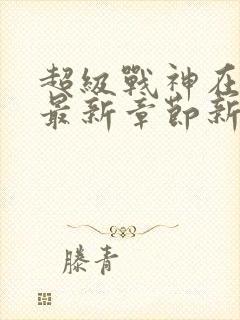 超級戰神在
最新章節新
滕青